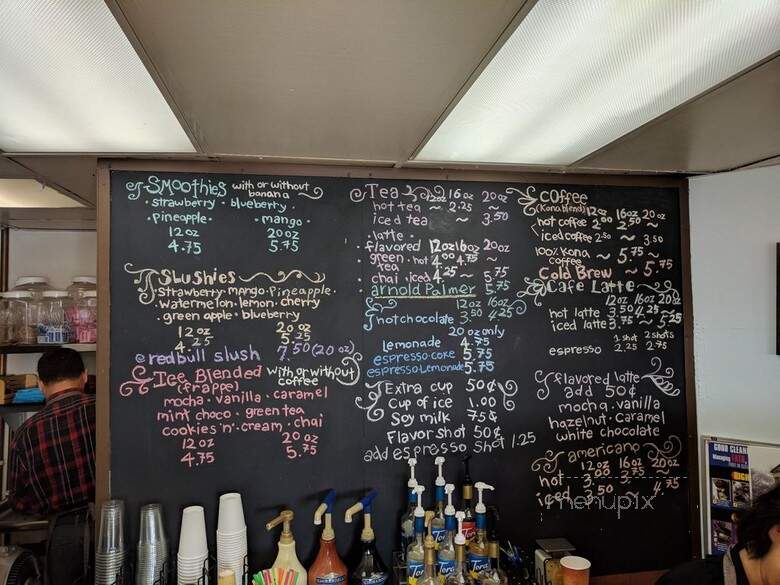 Smoothies with or without
banana
· strawberry · blueberry ·
· pineapple · · mango ·
12 oz 20 oz
4.75 5.75
Slushies
strawberry · mango · pineapple ·
· watermelon · lemon · cherry
· green apple · blueberry
12 oz 20 oz
4.25 5.25
redbull slush 7.50 (20 oz)
Ice Blended with or without
(frappe) coffee
mocha · vanilla · caramel
mint choco · green tea
cookies 'n' cream · chai
12 oz 20 oz
4.75 5.75
Tea 12 oz 16 oz 20 oz
hot tea ~ 2.25 ~
iced tea ~ ~ 3.50
· latte ·
· flavored 12 oz 16 oz 20 oz
· green · hot 4.00 4.75 ~
tea
· chai · iced 4.25 ~ 5.75
arnold Palmer 5.75
12 oz 16 oz
hot chocolate 3.50 4.25
20 oz only
Lemonade 4.75
espresso·coke 5.75
espresso·Lemonade 5.75
Extra cup 50¢
Cup of ice 1.00
Soy milk 75¢
Flavor shot 50¢
add espresso shot 1.25
Coffee
(Kona blend) 12 oz 16 oz 20 oz
hot coffee 2.00 2.50 ~
iced coffee 2.50 ~ 3.50
100% Kona ~ 5.75 ~
coffee
Cold Brew ~ ~ 5.75
Cafe Latte
12 oz 16 oz 20 oz
hot latte 3.50 4.25 ~
iced latte 3.75 ~ 5.25
1 shot 2 shots
espresso 2.25 2.75
flavored latte
add 50¢
mocha · vanilla
hazelnut · caramel
white chocolate
americano
12 oz 16 oz 20 oz
hot 3.00 3.75 ~
iced 3.50 ~ 4.75
menupix
Torani
GOOD CLEAN